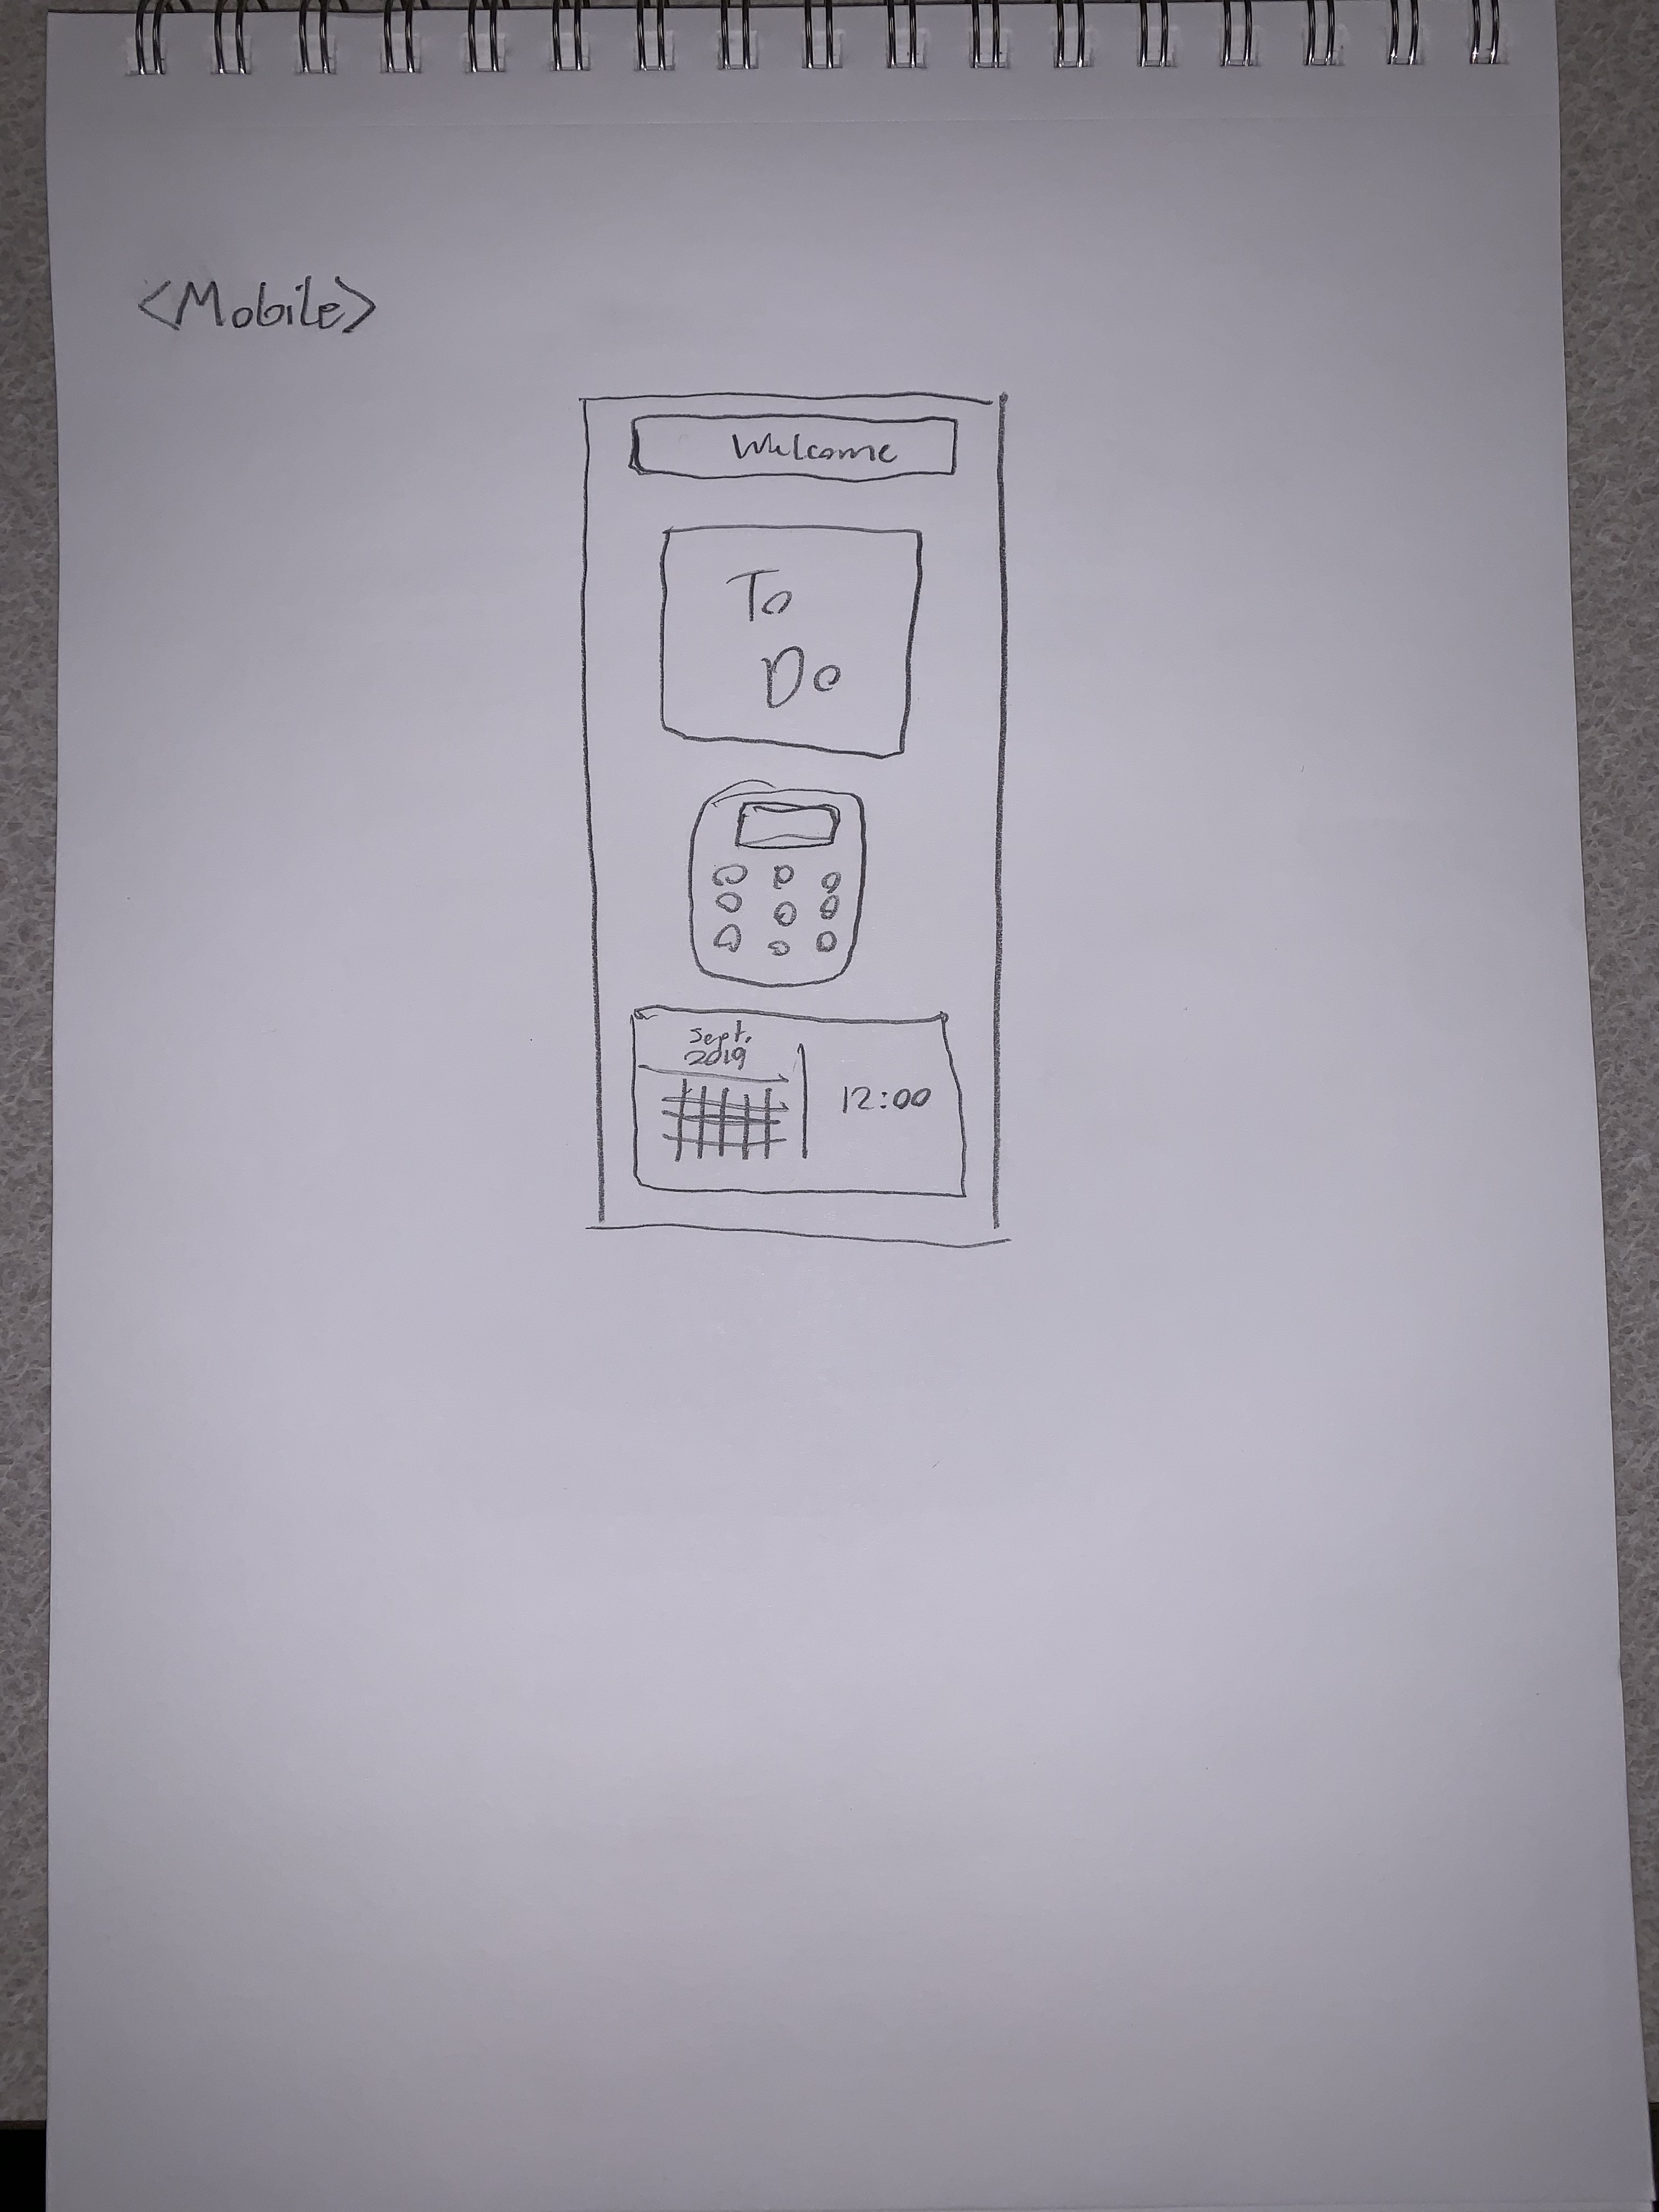 <Mobile>
Welcome
To
Do
Sept.
2019
12:00